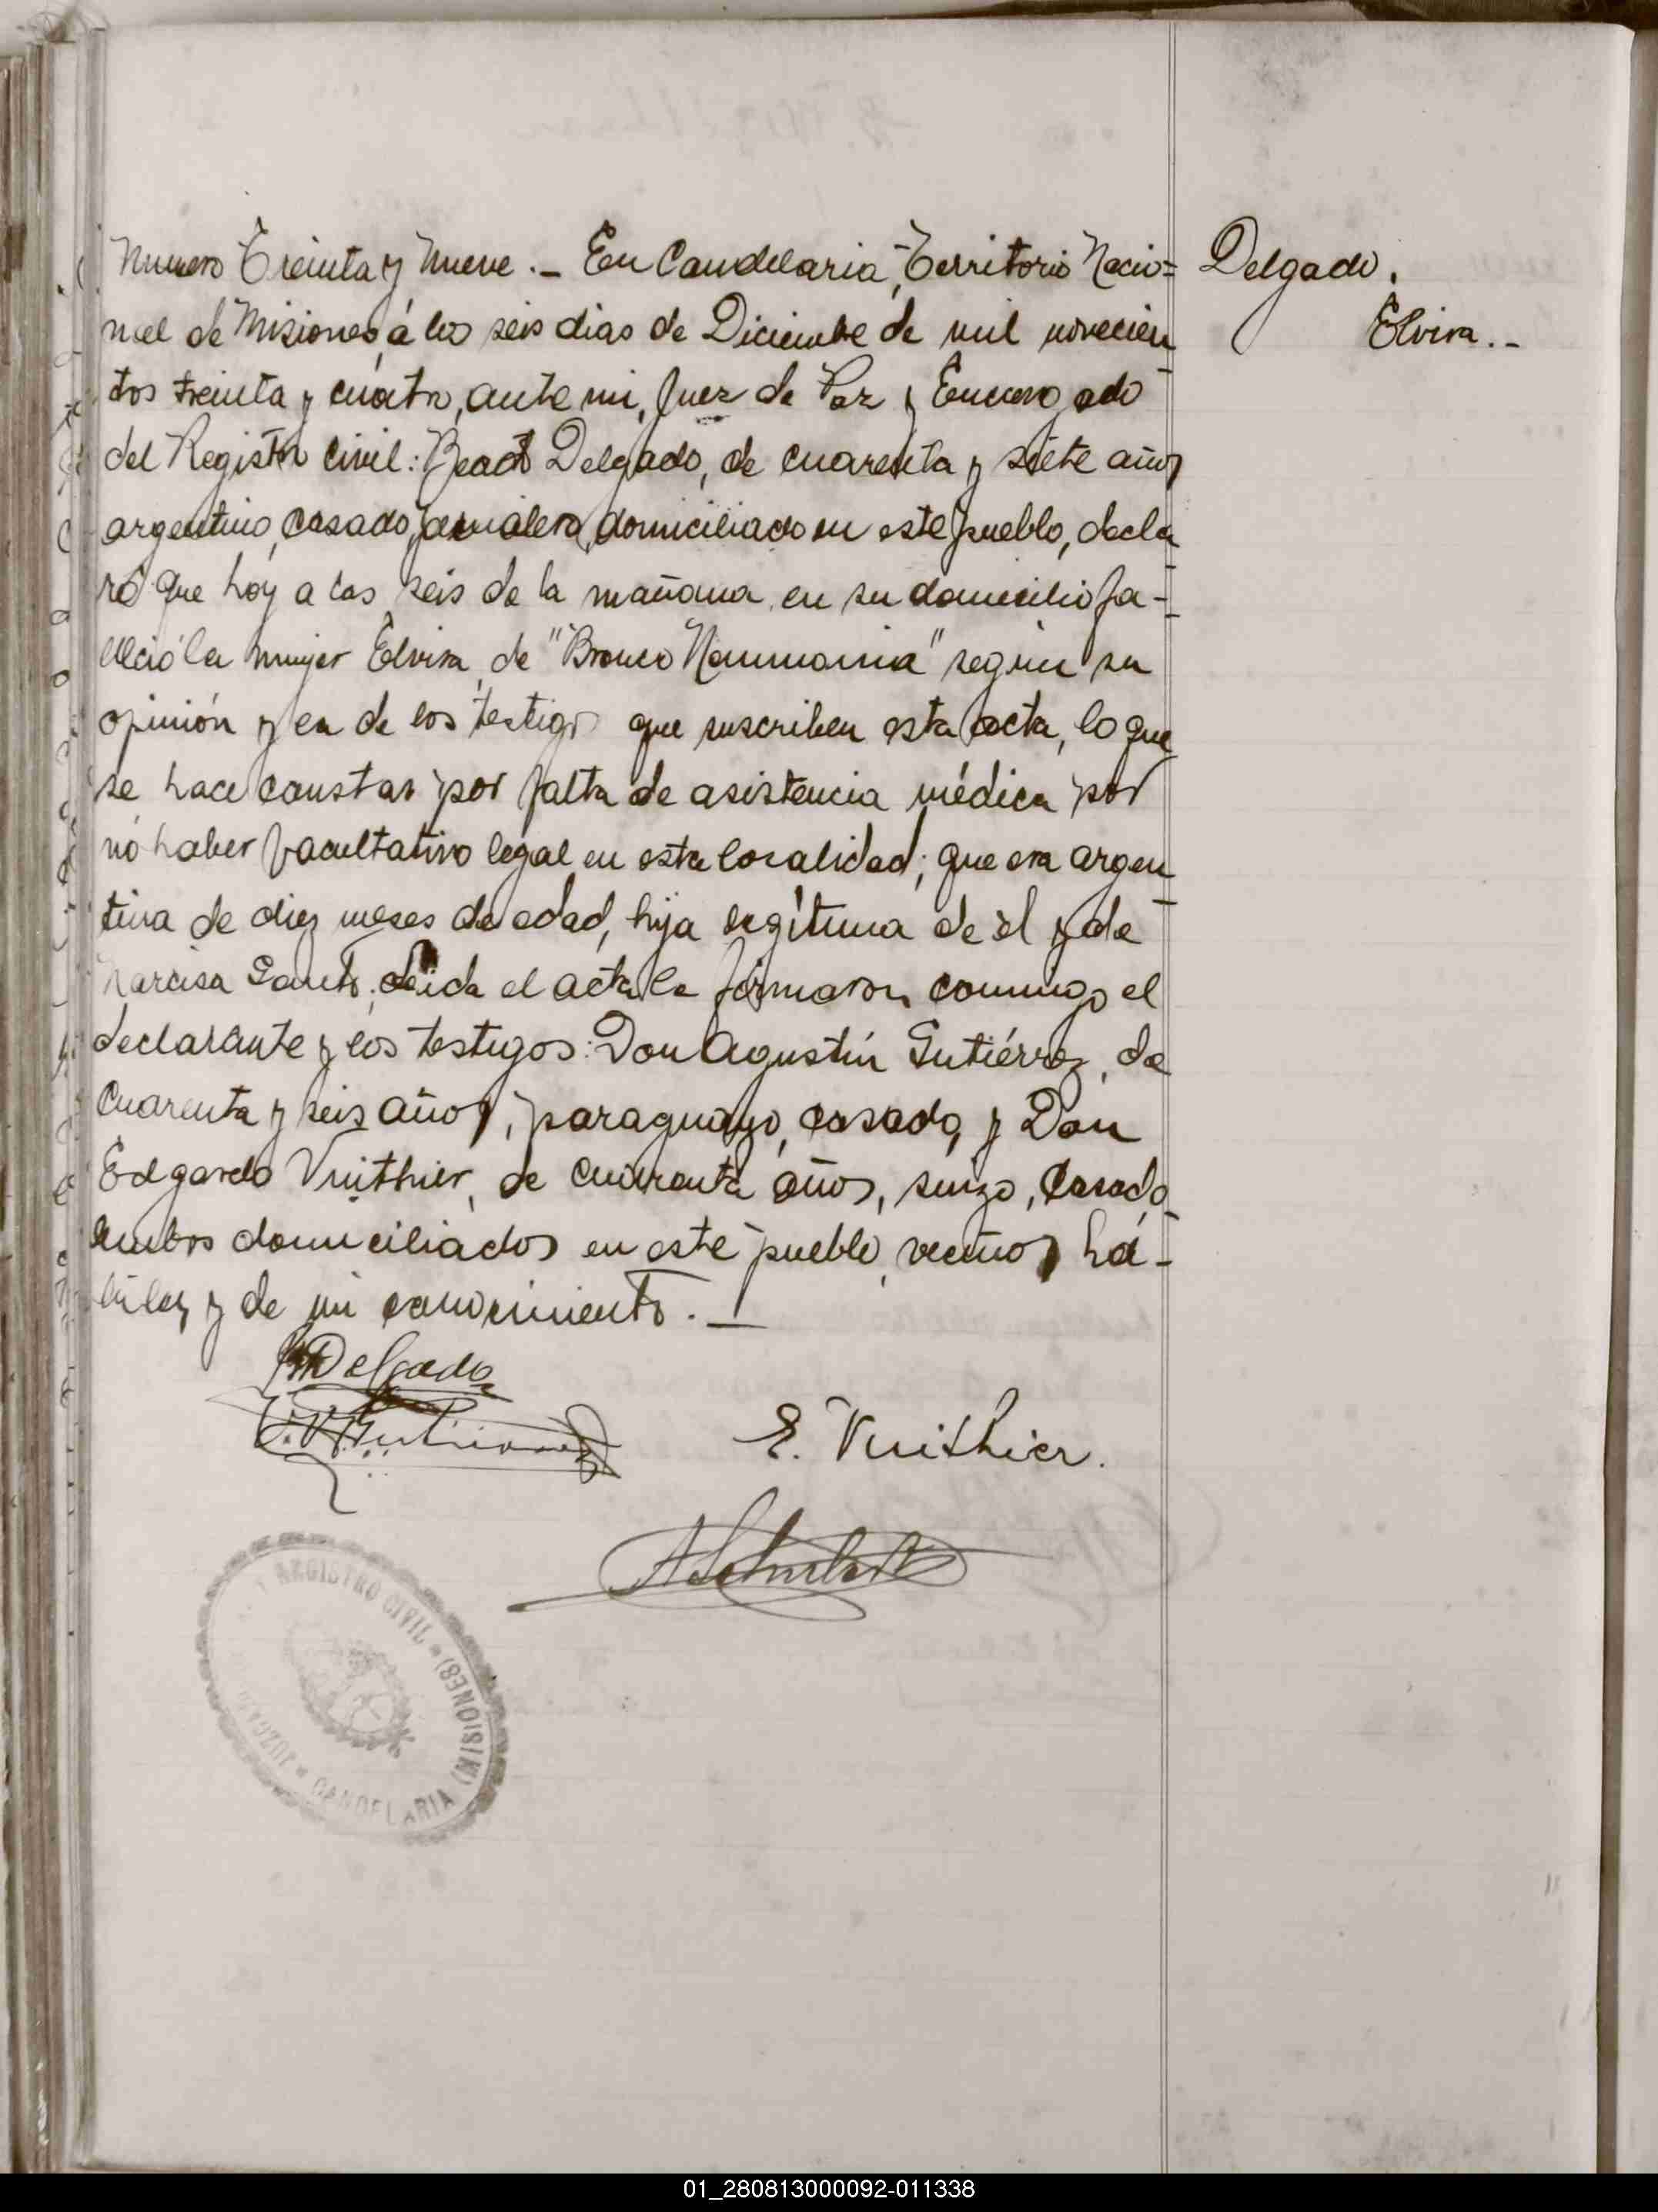 Numero Treinta y Nueve ._ En Candelaria, Territorio Nacio=
nal de Misiones, á los seis dias de Diciembre de mil novecien
tos treinta y cuatro, ante mi, Juez de Paz y Encargado
del Registro Civil: Delgado, de cuarenta y siete años
argentino, casado, jornalero, domiciliado en este pueblo, decla
ró que hoy a las seis de la mañana en su domicilio fa-
lleció la mujer Elvira, de "Bronco Neumonia" según su
opinión y en de los testigos que suscriben esta acta, lo que
se hace constar por falta de asistencia médica por
nó haber facultativo legal en esta localidad; que era argen
tina de diez meses de edad, hija legítima de él y de
Narcisa Leida el acta la firmaron conmigo el
declarante y los testigos: Don Agustín Gutiérrez, de
cuarenta y seis años, paraguayo, casado, y Don
Edgardo Vuithier, de cuarenta años, suizo, casado,
ambos domiciliados en este pueblo, vecinos há-
biles y de mi conocimiento. _
Delgado.
Elvira._
Delgado
E. Vuithier.
REGISTRO CIVIL * (MISIONES)
JUZGADO * CANDELARIA
01_280813000092-011338